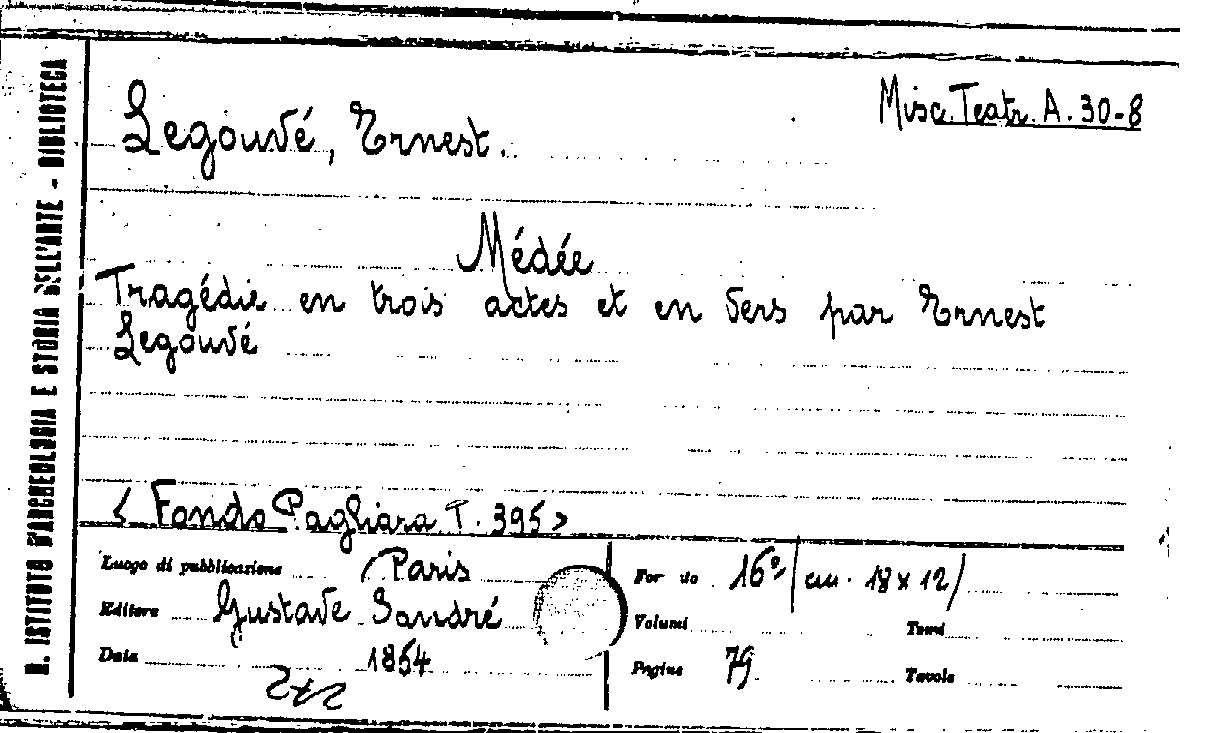 R. ISTITUTO D'ARCHEOLOGIA E STORIA DELL'ARTE - BIBLIOTECA
Misc. Teatr. A. 30-8
Legouvé, Ernest.
Médée
Tragédie en trois actes et en vers par Ernest
Legouvé
< Fondo Pagliara T. 395 >
Luogo di pubblicazione Paris
Editore Gustave Sandré
Data 1854
Formato 16º/cm. 18 x 12/
Volumi Tomi
Pagine 79 Tavole